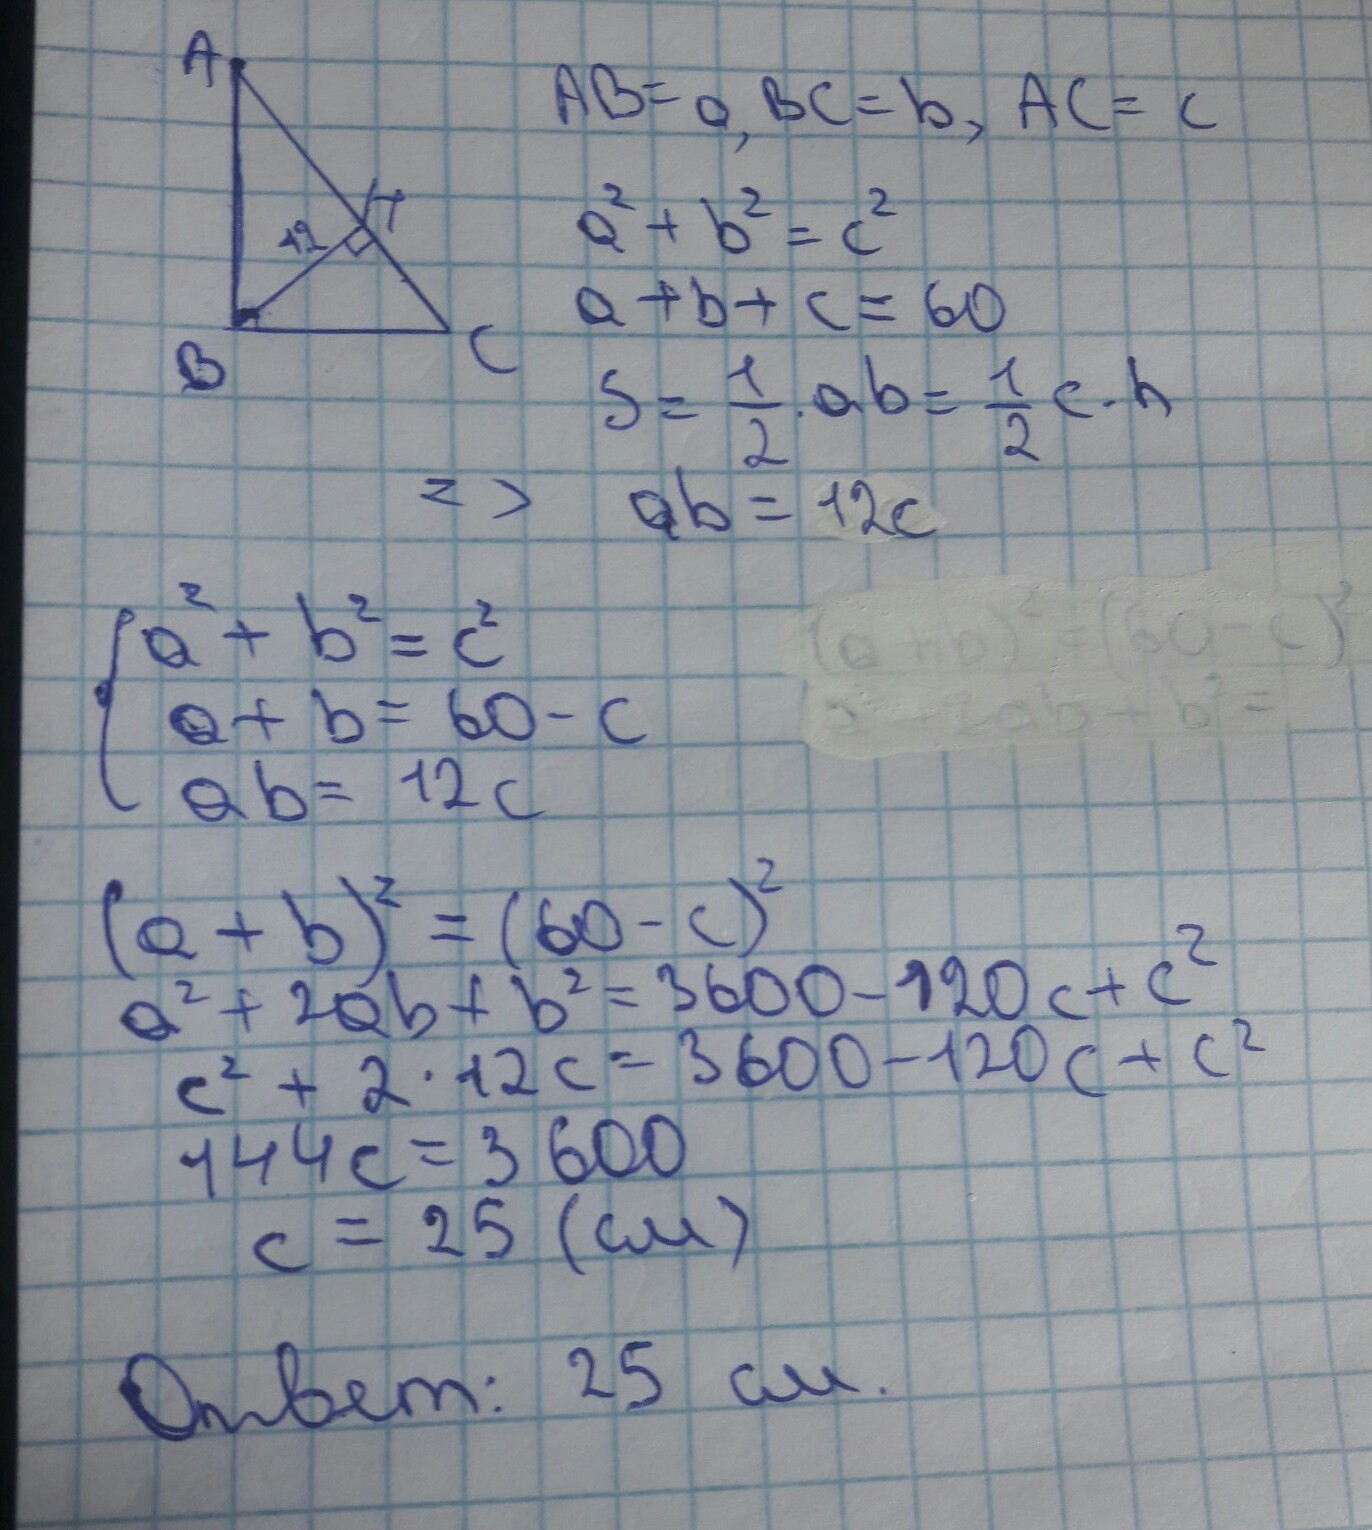 A
AB = a, BC = b, AC = c
H
12
a² + b² = c²
a + b + c = 60
B
C
S = 1/2 · ab = 1/2 c · h
=> ab = 12c
a² + b² = c²
a + b = 60 - c
ab = 12c
(a + b)² = (60 - c)²
a² + 2ab + b² =
(a + b)² = (60 - c)²
a² + 2ab + b² = 3600 - 120c + c²
c² + 2 · 12c = 3600 - 120c + c²
144c = 3600
c = 25 (см)
Ответ: 25 см.